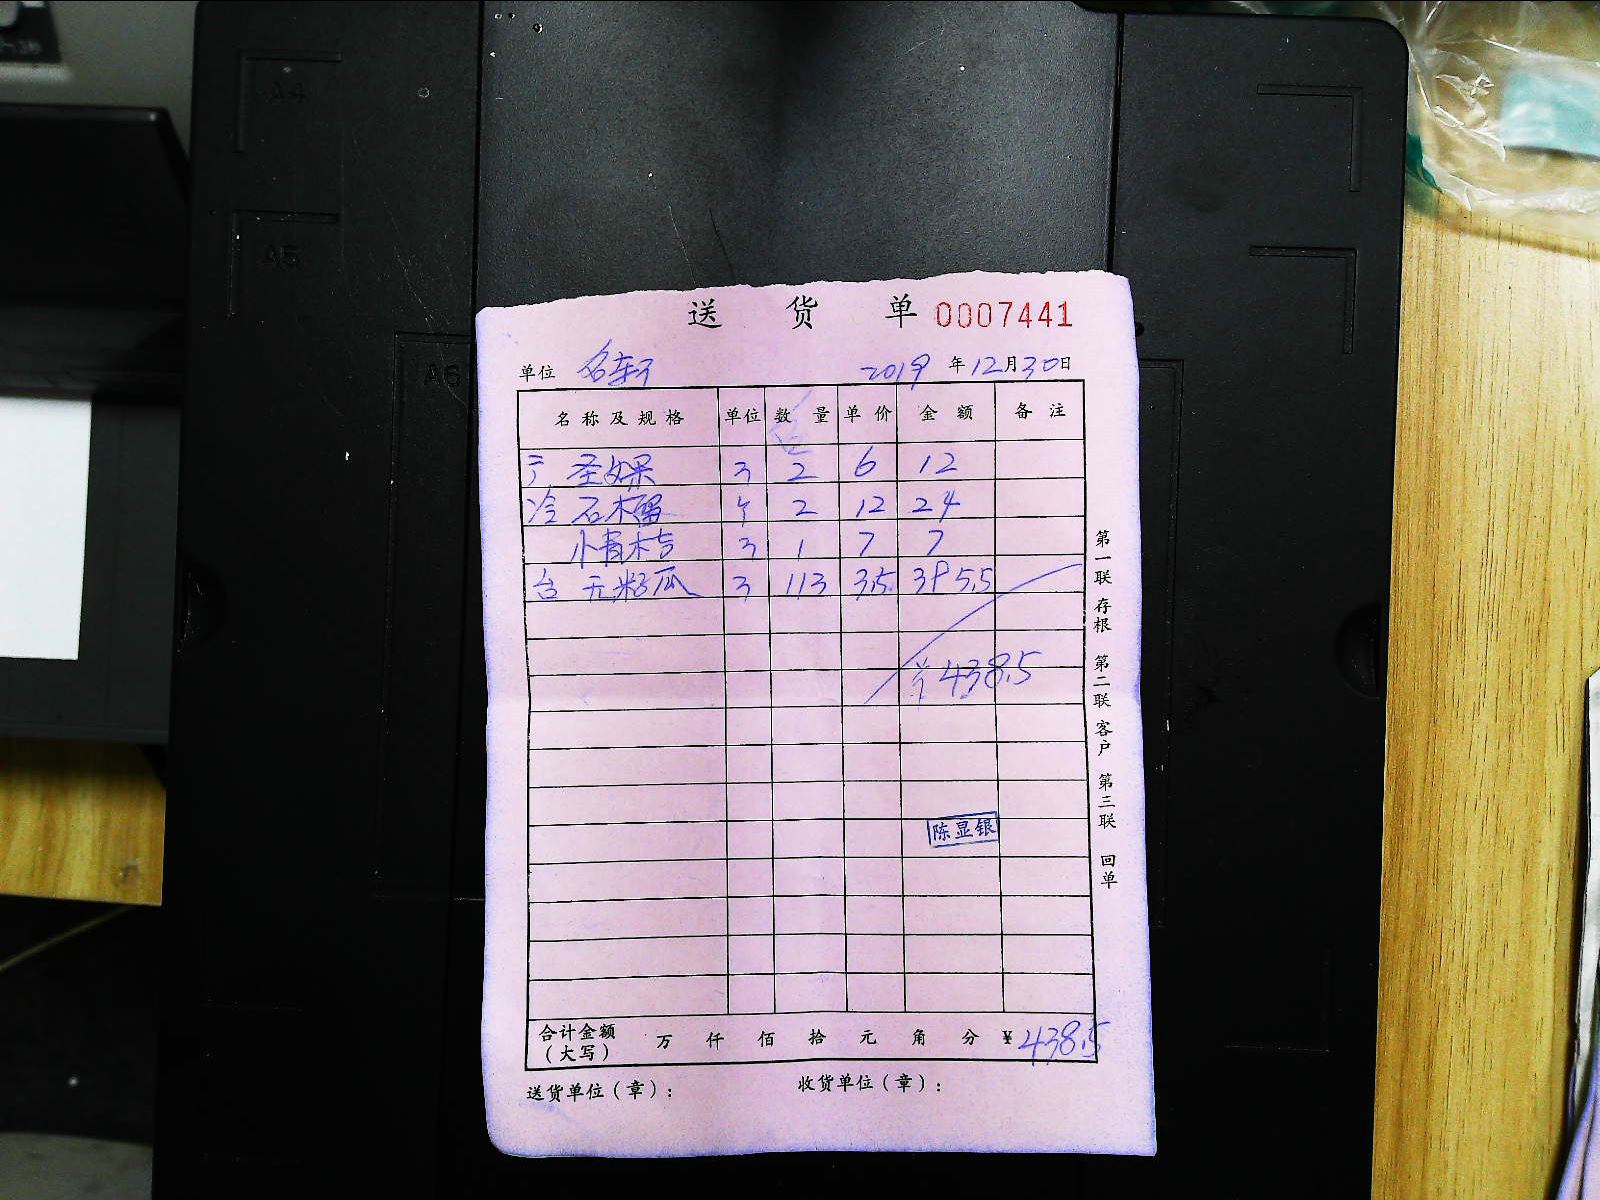 A4
A5
A6
送 货 单 0007441
单位 名轩 2019 年 12 月 30 日
名称及规格 单位 数量 单价 金额 备注
圣女果 3 2 6 12
冷 石榴 个 2 12 24
小青桔 3 1 7 7
台 无籽瓜 3 113 3.5 395.5
¥438.5
陈显银
合计金额（大写） 万 仟 佰 拾 元 角 分 ¥438.5
送货单位（章）： 收货单位（章）：
第一联 存根 第二联 客户 第三联 回单